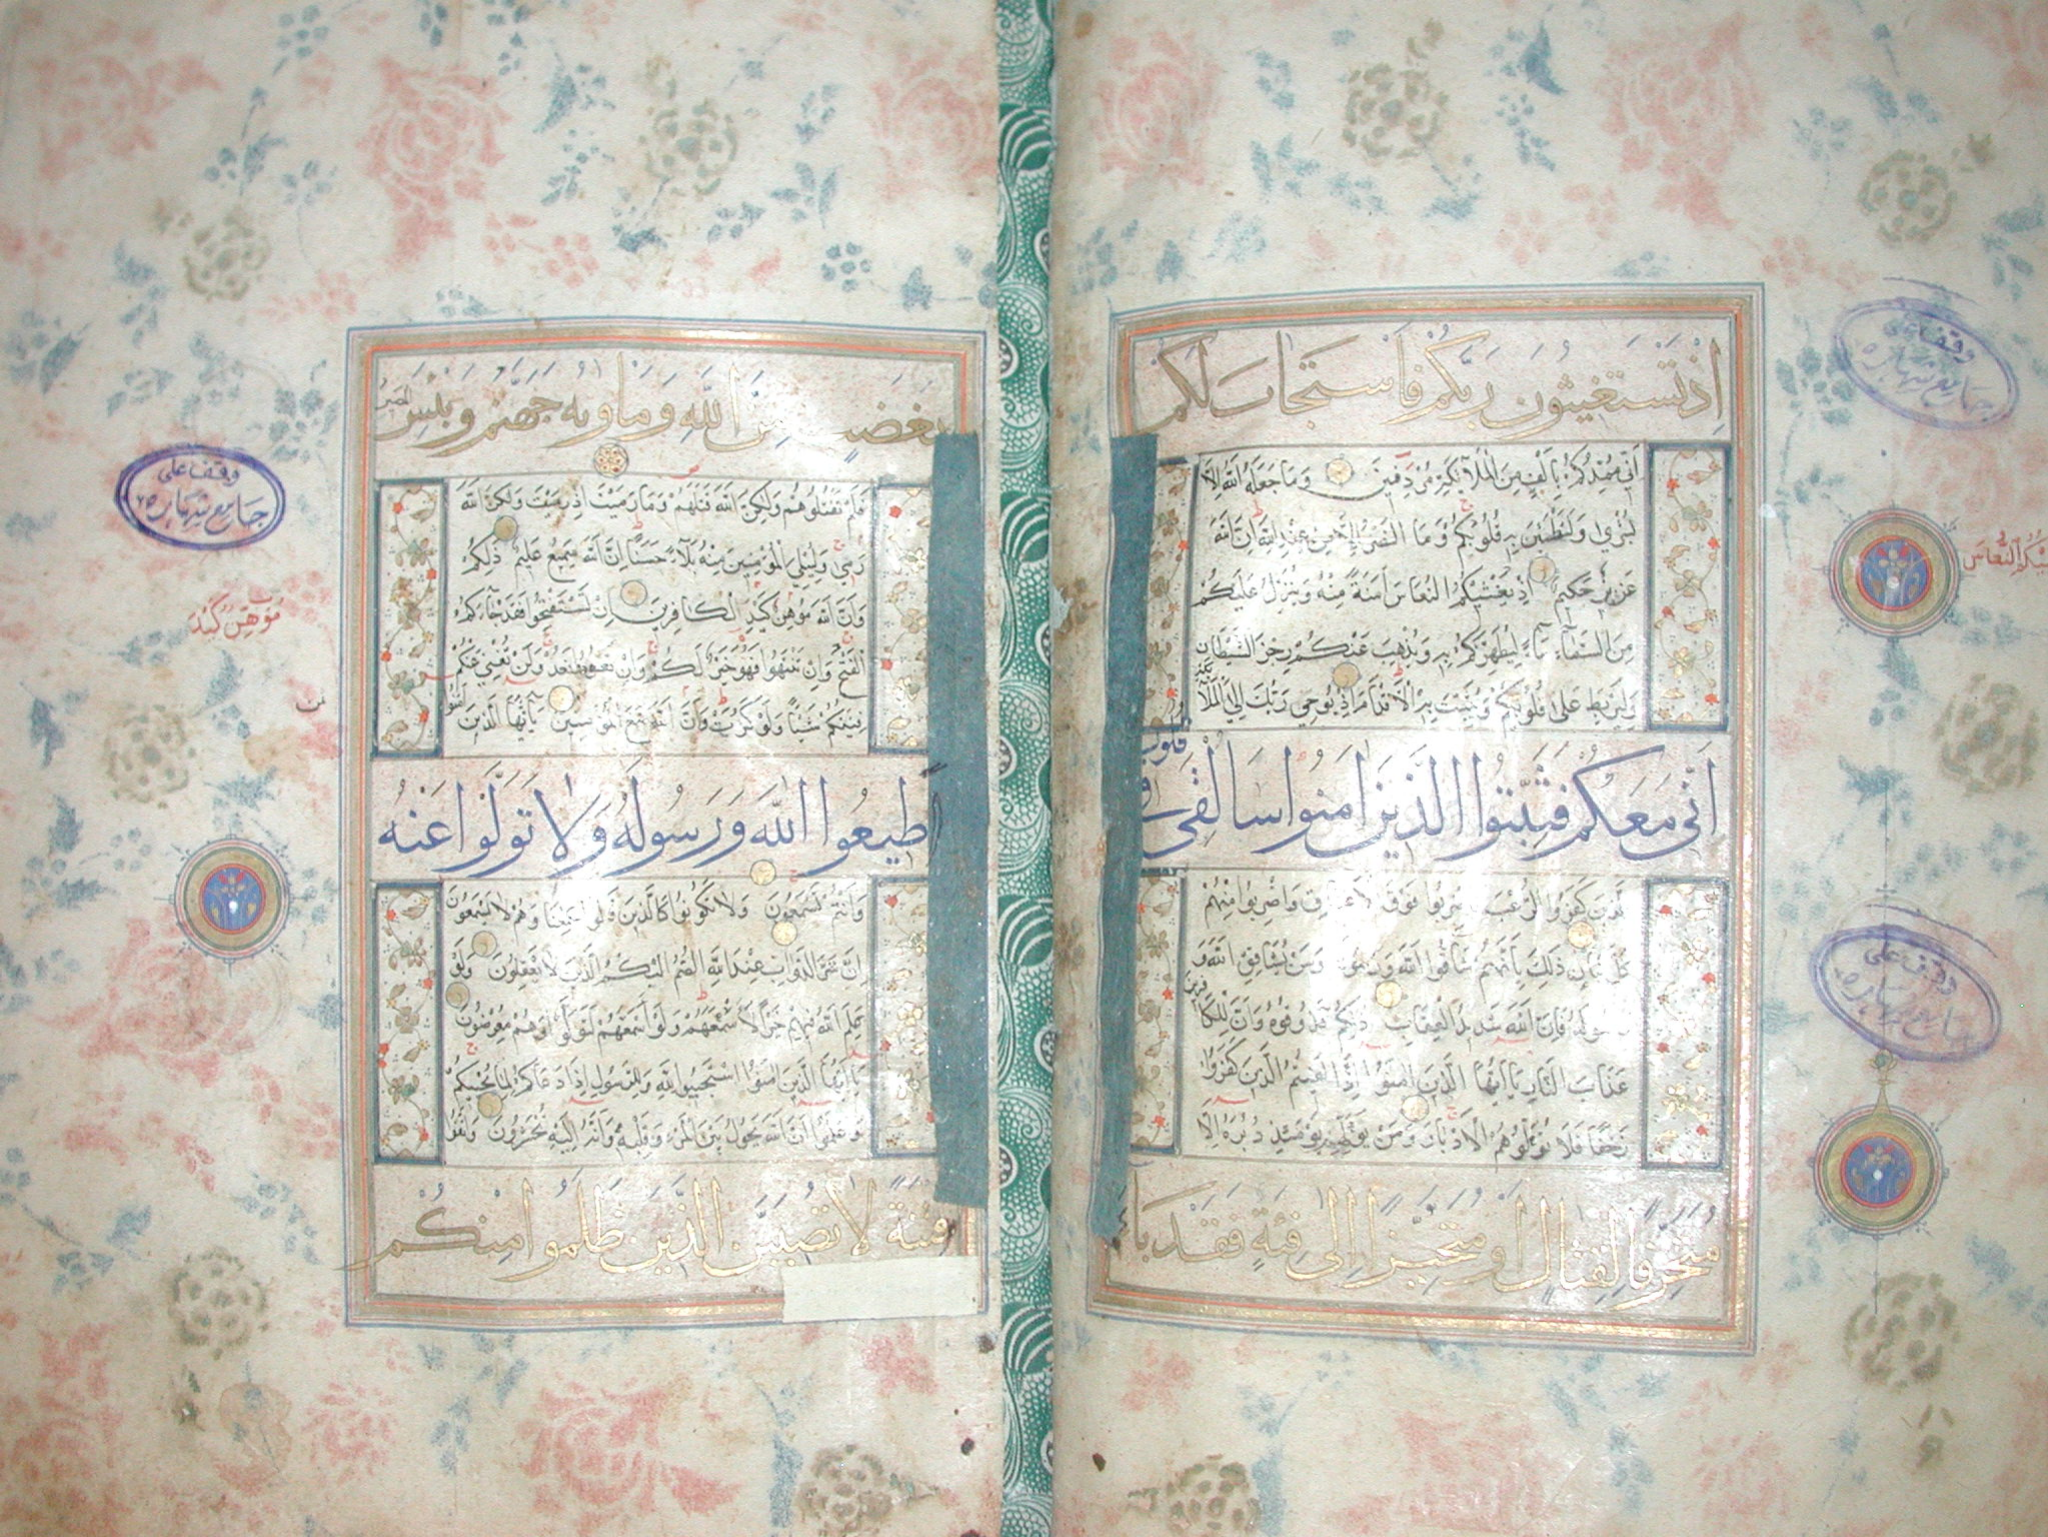 اذ تستغيثون ربكم فاستجاب لكم
اني ممدكم بالف من الملآئكة مردفين وما جعله الله الا
بشرى ولتطمئن به قلوبكم وما النصر الا من عند الله ان الله
عزيز حكيم اذ يغشيكم النعاس امنة منه وينزل عليكم
من السماء ماء ليطهركم به ويذهب عنكم رجز الشيطان
وليربط على قلوبكم ويثبت به الاقدام اذ يوحي ربك الى الملآئكة
اني معكم فثبتوا الذين امنوا سالقي في قلوب
الذين كفروا الرعب فاضربوا فوق الاعناق واضربوا منهم
كل بنان ذلك بانهم شاقوا الله ورسوله ومن يشاقق الله و
رسوله فان الله شديد العقاب ذلكم فذوقوه وان للكافرين
عذاب النار يا ايها الذين امنوا اذا لقيتم الذين كفروا
زحفا فلا تولوهم الادبار ومن يولهم يومئذ دبره الا
متحرفا لقتال او متحيزا الى فئة فقد باء
وقف على
جامع
النعاس
وقف على
جامع
بغضب من الله وماويه جهنم وبئس المصير
فلم تقتلوهم ولكن الله قتلهم وما رميت اذ رميت ولكن الله
رمى وليبلي المؤمنين منه بلاء حسنا ان الله سميع عليم ذلكم
وان الله موهن كيد الكافرين ان تستفتحوا فقد جاءكم
الفتح وان تنتهوا فهو خير لكم وان تعودوا نعد ولن تغني عنكم
فئتكم شيئا ولو كثرت وان الله مع المؤمنين يا ايها الذين امنوا
اطيعوا الله ورسوله ولا تولوا عنه
وانتم تسمعون ولا تكونوا كالذين قالوا سمعنا وهم لا يسمعون
ان شر الدواب عند الله الصم البكم الذين لا يعقلون ولو
علم الله فيهم خيرا لاسمعهم ولو اسمعهم لتولوا وهم معرضون
يا ايها الذين امنوا استجيبوا لله وللرسول اذا دعاكم لما يحييكم
واعلموا ان الله يحول بين المرء وقلبه وانه اليه تحشرون واتقوا
فتنة لا تصيبن الذين ظلموا منكم
وقف على
جامع
موهن كيد